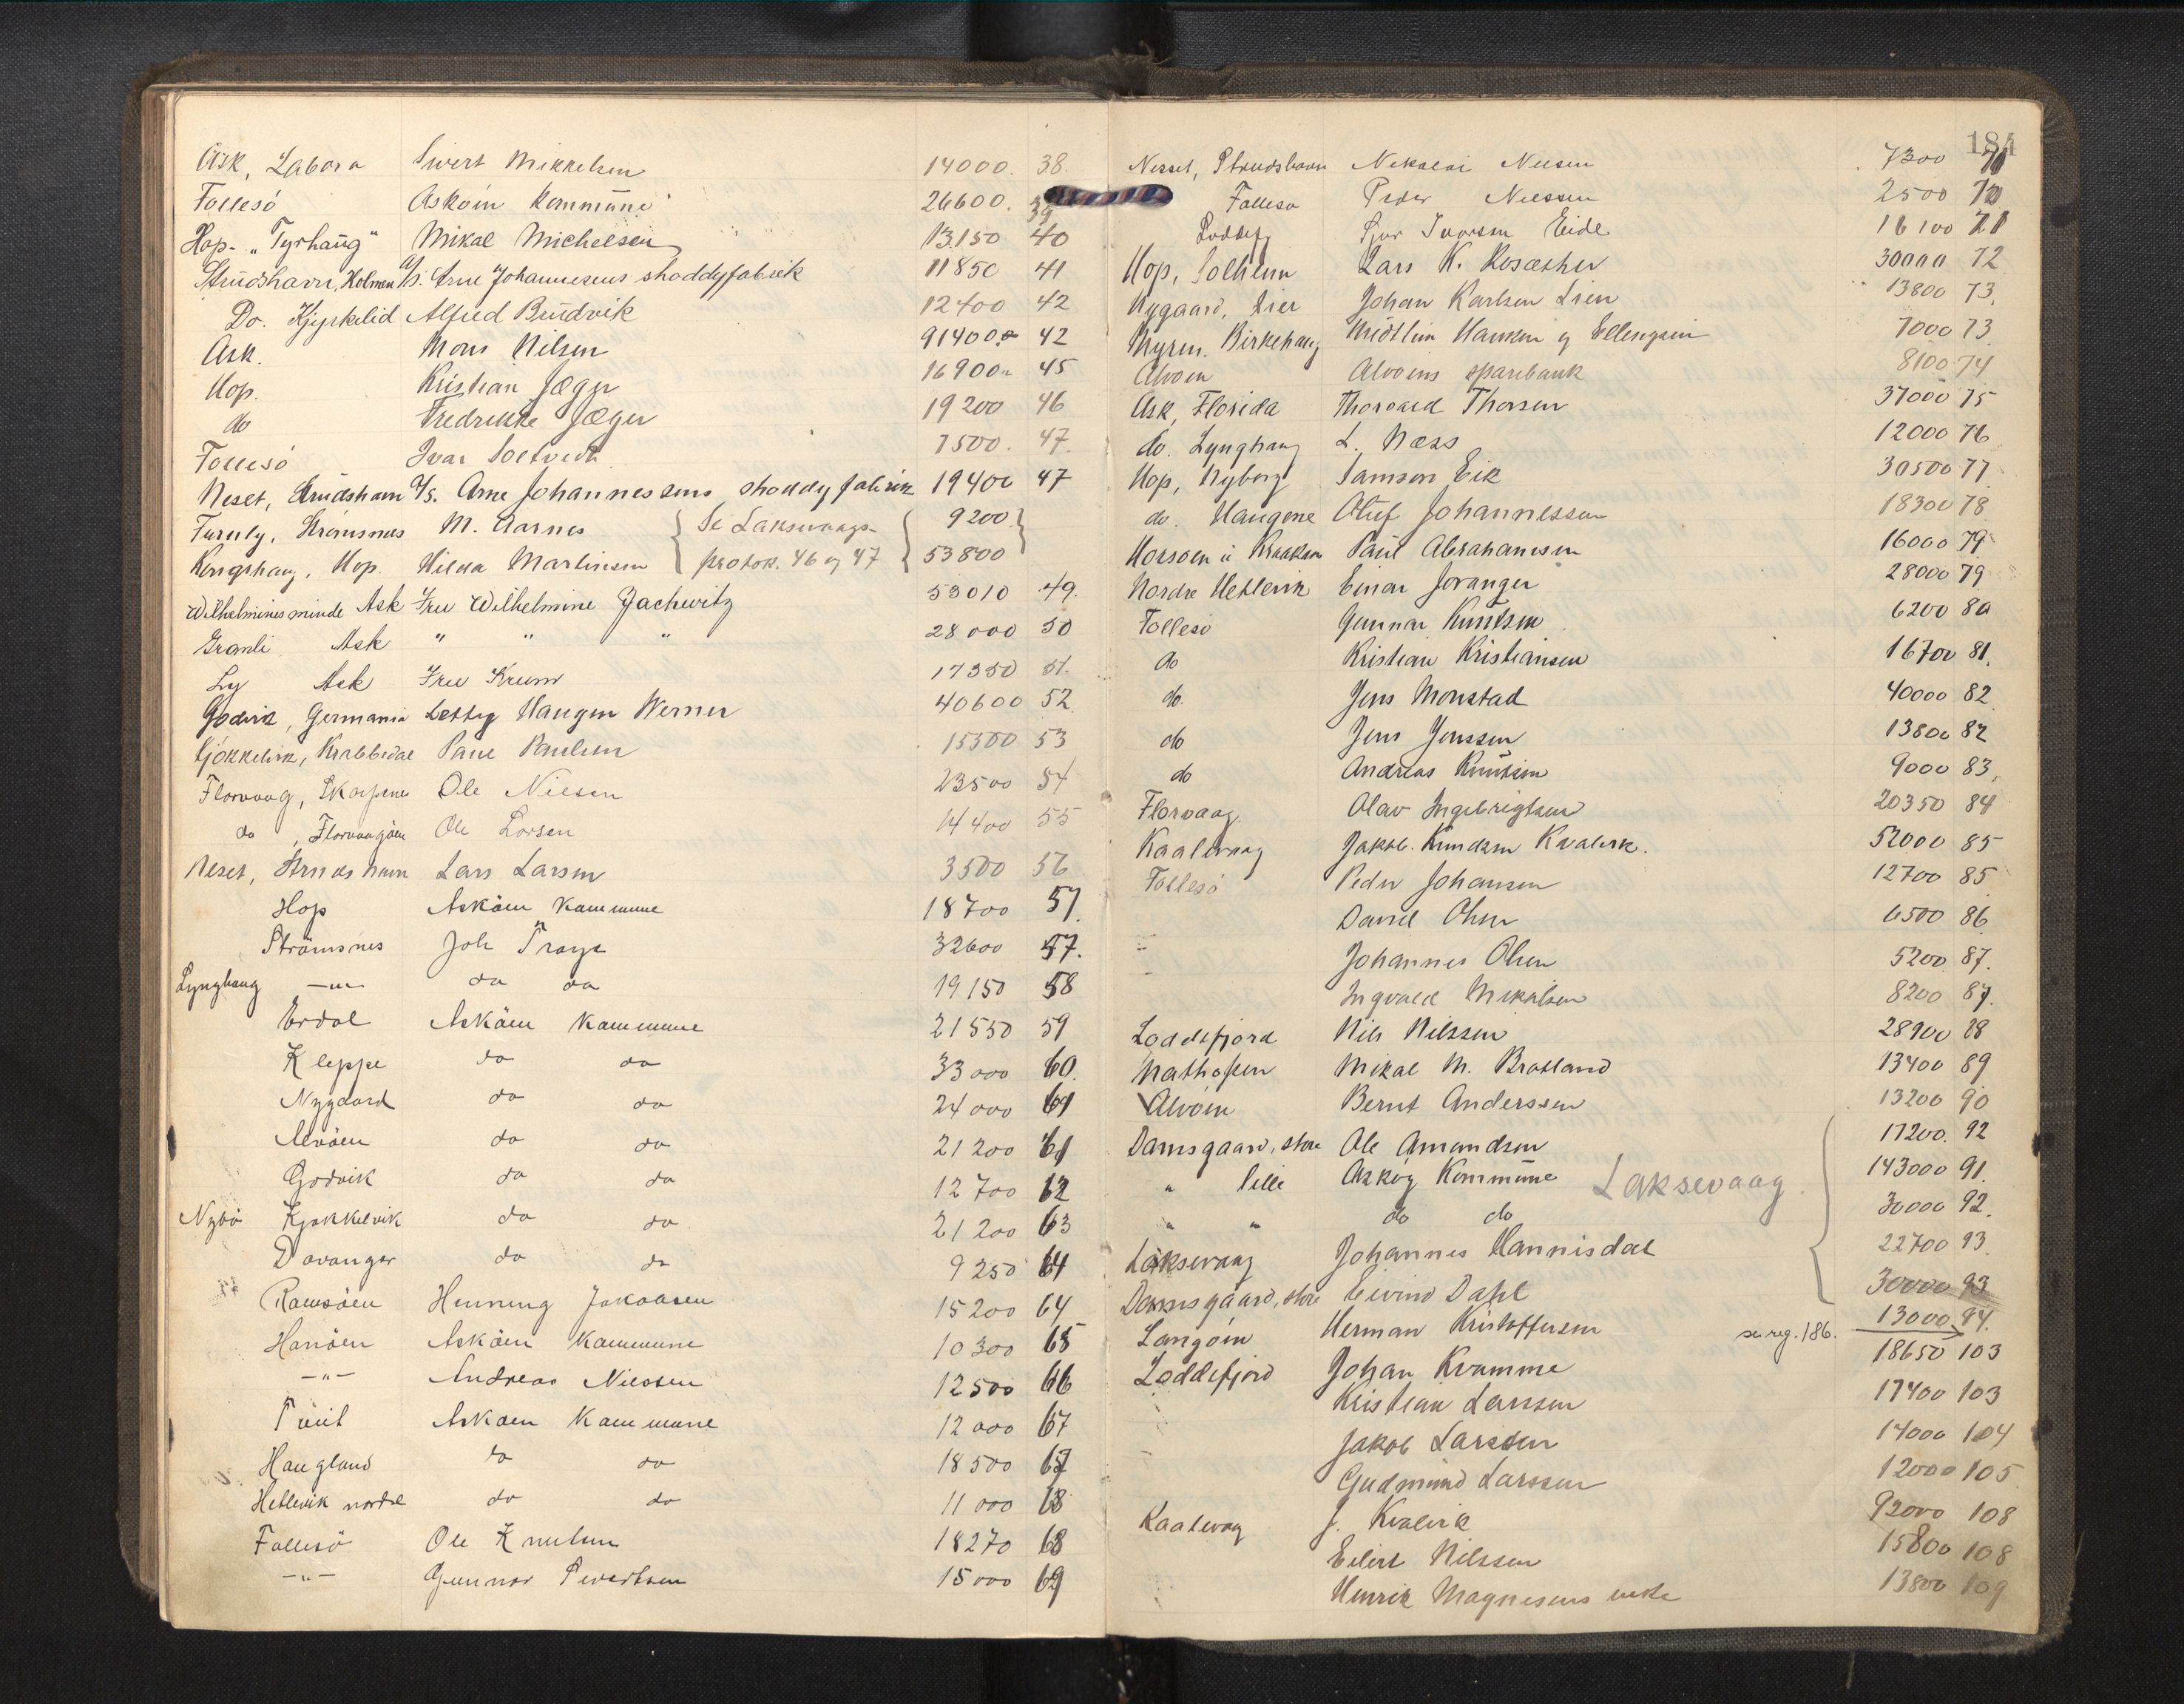 Ask, Labora Sivert Mikkelsen 14000. 38.
Follesö Asköin Kommune 26600. 39
Hop- "Tyrhaug" Mikal Michelsen 13150 40
Strudshavn, Holmen A/s. Arne Johannesens shoddyfabrik 11850 41
Do. Kjyrkelid Alfred Brudvik 12400 42
Ask. Mons Nilsen 91400 42
Hop. Kristian Jæger 16900 45
do Fredrikke Jæger 19200 46
Follesö Ivar Soltvedt 7500. 47
Neset, Strudshavn A/s. Arne Johannessens shoddyfabrik 19400 47
Furuly, Strömsnes M. Aarnes { Se Laksevaags- { 9200 }
Kongshaug, Hop. Hilda Martinsen { protok. 46 og 47 { 53800 }
Wilhelminesminde Ask Fru Wilhelmine Jachwitz 53010 49.
Granli Ask " " " 28000 50
Ly Ask Fru Krum 17350 51.
Godvik, Germania Letty Haugen Werner 40600 52
Kjökkelvik, Krabbedal Paul Paulsen 15300 53
Florvaag, Skarpenes Ole Nilsen 23500 54
do, Florvaagöen Ole Larsen 14400 55
Neset, Strudshavn Lars Larsen 3500 56
Hop Asköen Kommune 18700 57.
Strömsnes Joh Traye 32600 57.
Lynghaug —"— do do 19150 58
Erdal Asköen Kommune 21550 59
Kleppe do do 33000 60.
Nygaard do do 24000 61
Alvöen do do 21200 61
Godvik do do 12700 62
Nybö Kjökkelvik do do 21200 63
Davanger do do 9250 64
Ramsöen Henning Jakobsen 15200 64
Hanöen Asköen Kommune 10300 65
—"— Andreas Nilssen 12500 66
Tveit Asköen Kommune 12000 67
Haugland do do 18500 67
Hetlevik nordre do do 11000 68
Follesö Ole Knutsen 18270 68
—"— Gunnar Sivertsen 15000 69
184
Nesset, Strudshavn Nikolai Nilsen 7300 70
Follesö Peder Nilssen 2500 70
Loddefj Sjur Ivarsen Eide 16100 71
Hop, Solheim Lars K. Rosæther 30000 72
Nygaard, Lier Johan Karlsen Lien 13800 73.
Myren. Birkehaug Midtlien Hauken og Ellengsein 7000 73
Alvöen Alvöens sparebank 8100 74
Ask, Florida Thorvald Thorsen 37000 75
do. Lynghaug L. Næss 12000 76
Hop, Nyborg Samson Eik 30500 77
do. Haugene Oluf Johannessen 18300 78
Horsöen i Kraakön Paul Abrahamsen 16000 79
Nordre Hetlevik Einar Joranger 28000 79
Follesö Gunnar Knutsen 6200 80
do Kristian Kristiansen 16700 81.
do. Jens Monstad 40000 82
do Jens Jenssen 13800 82
do Andreas Knutsen 9000 83.
Florvaag. Olav Ingebrigtsen 20350 84
Kaalevaag Jakob Knudsen Kvalvik. 52000 85
Follesö Peder Johansen 12700 85
David Olsen 6500 86
Johannes Olsen 5200 87.
Ingvald Mikalsen 8200 87.
Loddefjord Nils Nilssen 28900 88
Mathopen Mikal M. Bratland 13400 89
Alvöin Bernt Anderssen 13200 90
Damsgaard, store Ole Amundsen 17200. 92
" lille Asköy Kommune Laksevaag. 143000 91.
" " do do 30000 92.
Laksevaag Johannes Hannisdal 22700 93.
Damsgaard, store Eivind Dahl 30000 93
Langöin Herman Kristoffersen se reg. 186. 13000 94.
Loddefjord Johan Kvamme 18650 103
Kristian Larssen 17400 103
Jakob Larssen 14000 104
Gudmund Larssen 12000 105
Kaalevaag J. Kvalvik 92000 108
Eilert Nilssen 15800 108
Henrik Magnesens enke 13800 109